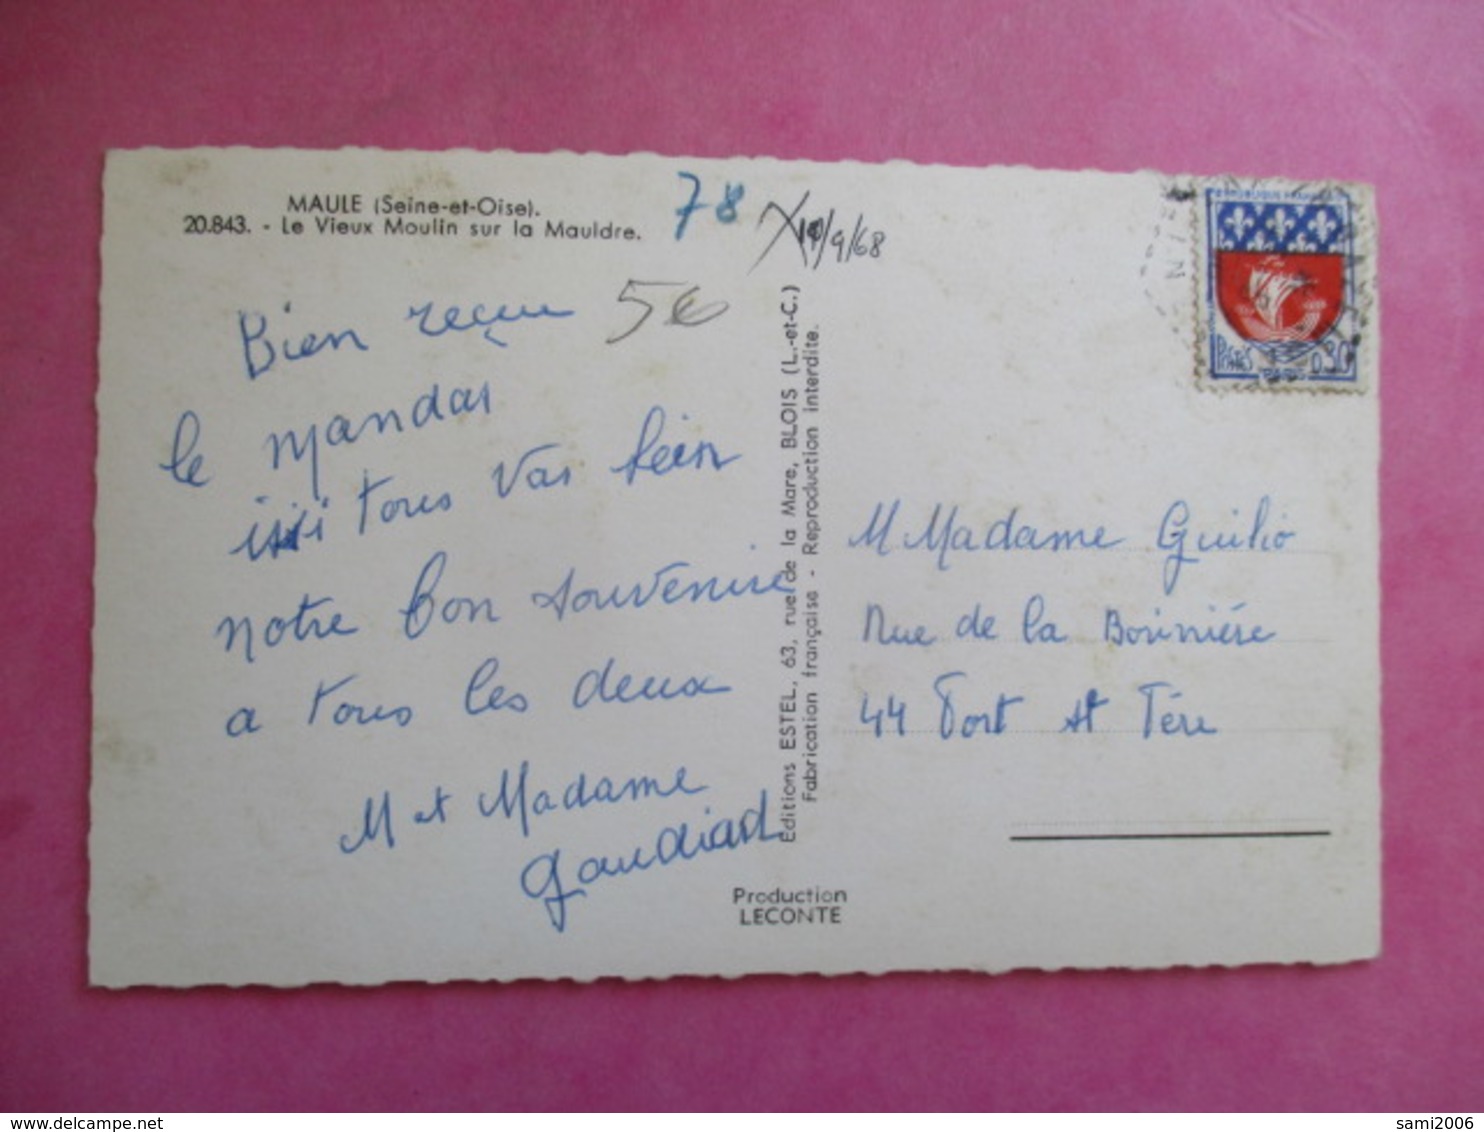 MAULE (Seine-et-Oise).
20.843. - Le Vieux Moulin sur la Mauldre.
78
19/9/68
5€
Bien reçue
le mandas
issi tous vas bien
notre bon souvenire
a tous les deux
M et Madame
Gaudiad
Editions ESTEL, 63, rue de la Mare, BLOIS (L.-et-C.)
Fabrication française - Reproduction interdite.
Production
LECONTE
REPUBLIQUE FRANÇAISE
POSTES 0,30
PARIS
M Madame Guilio
Rue de la Borinière
44 Port st Père
delcampe.net
sami2006